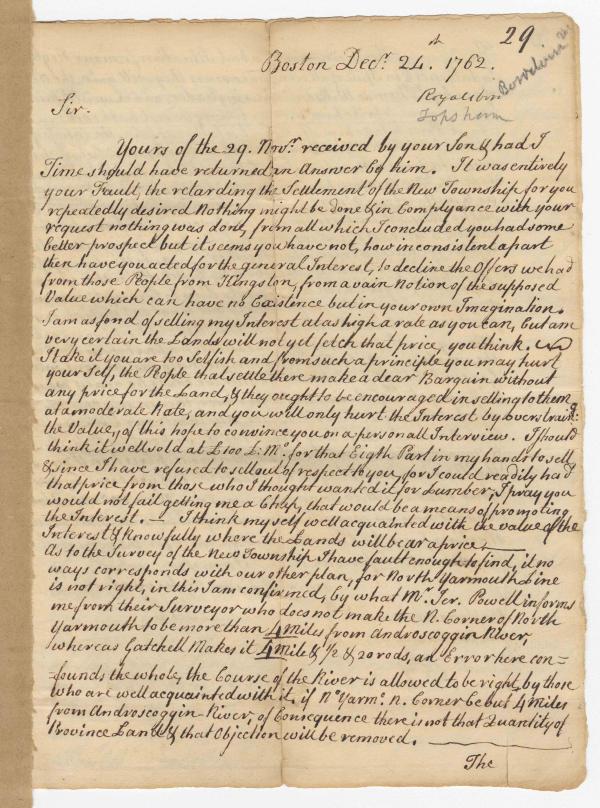 29
Boston Decr. 24th. 1762.
Bowdoin
Royalsbor
Topsham
Sir.
Yours of the 29. Novr. received by your Son & had I
Time should have returned an Answer by him. It was entirely
your Fault, the retarding the Settlement of the New Township for you
repeatedly desired Nothing might be done & in Complyance with your
request nothing was done, from all which I concluded you had some
better prospect but it seems you have not, how inconsistent a part
then have you acted for the general Interest, to decline the Offers we had
from those People from Kingston, from a vain Notion of the supposed
Value which can have no Existence but in your own Imagination.
I am as fond of selling my Interest at as high a rate as you can, but am
very certain the Lands will not yet fetch that price, you think.
I take it you are too Selfish and from such a principle you may hurt
your Self, the People that settle there make a dear Bargain without
any price for the Land, & they ought to be encouraged in selling to them
at a moderate Rate, and you will only hurt the Interest by overstraing:
the Value, of this hope to convince you on a personall Interview. I should
think it well sold at £100 L: Mo. for that Eigth Part in my hands to sell
& since I have refused to sell out of respect to you, for I could readily had
that price from those who I thought wanted it for Lumber, I pray you
would not fail getting me a Chap, that would be a means of promoting
the Interest. — I think myself well acquainted with the value of the
Interest & Know fully where the Lands will bear a price
As to the Survey of the New Township I have fault enough to find, it no
ways corresponds with our other plan, for North Yarmouth Line
is not right, in this I am confirmed, by what Mr. Jer. Powell informs
me from their Surveyor who does not make the N. Corner of North
Yarmouth to be more than 4 Miles from Androscoggin River,
whereas Gatchell Makes it 4 Mile & 1/2 & 20 rods, an Error here con=
=founds the whole, the Course of the River is allowed to be right by those
who are well acquainted with it, if No. Yarmo. N. Corner be but 4 Miles
from Androscoggin River, of Consequence there is not that Quantity of
Province Land & that Objection will be removed.
The